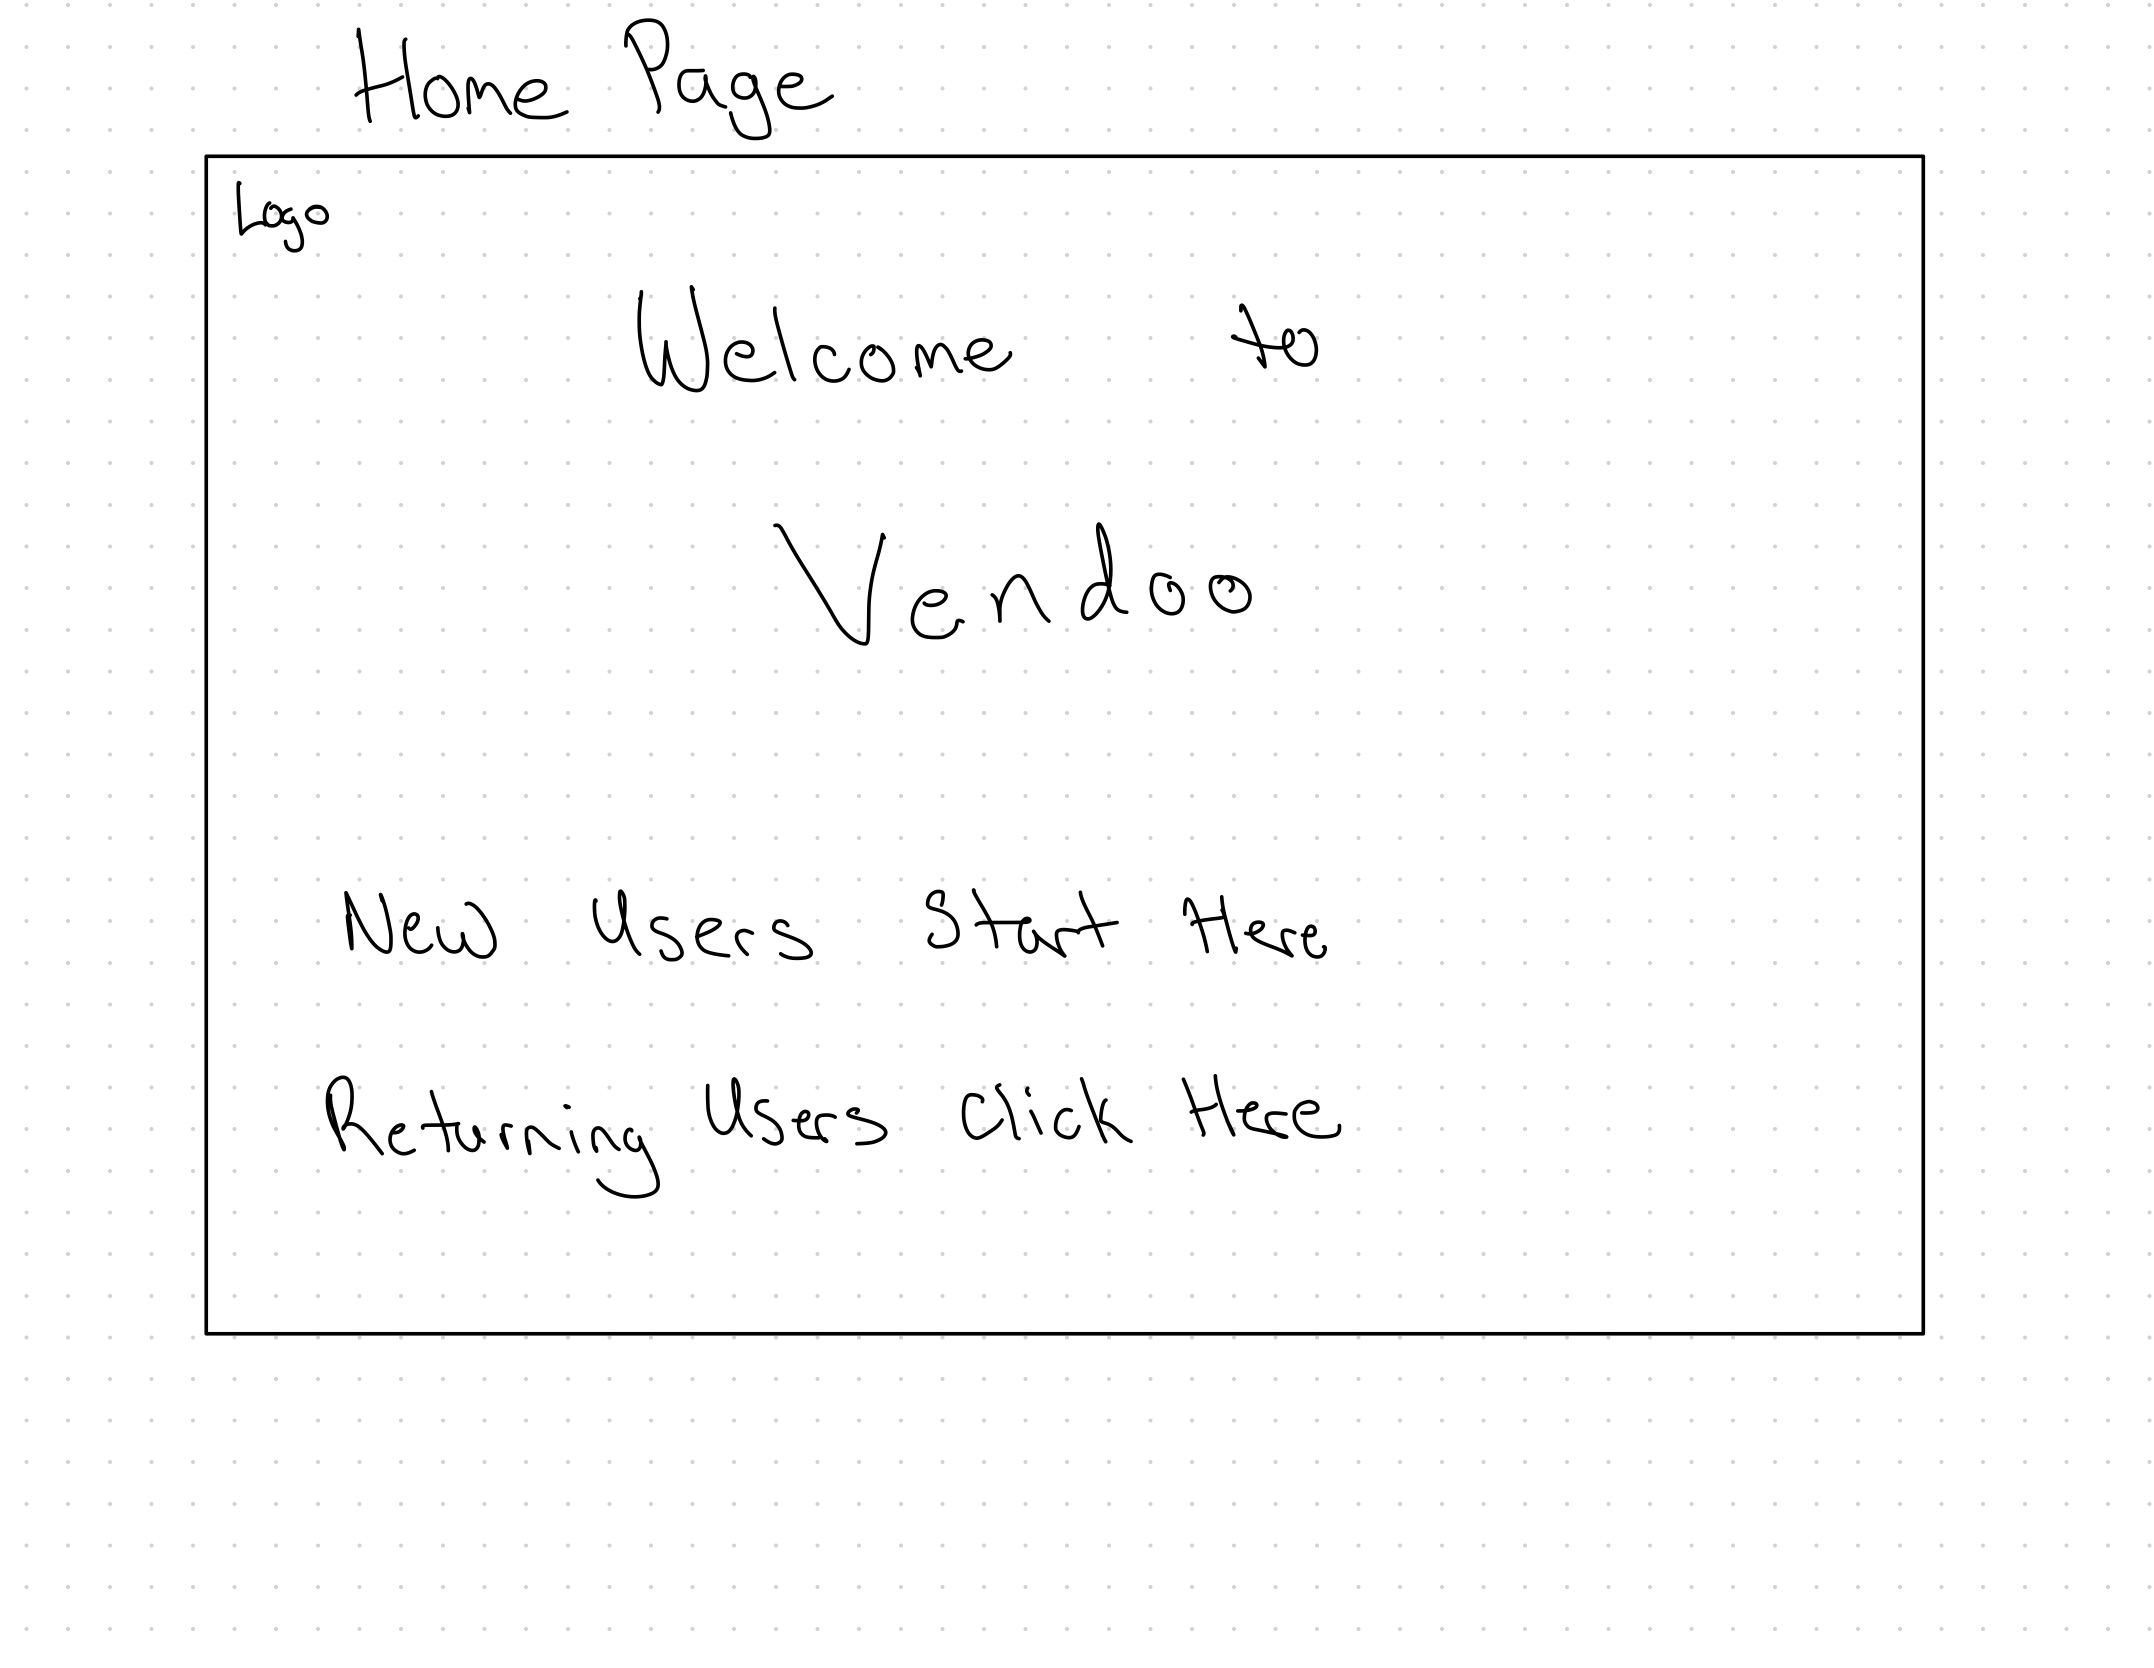 Home Page
Logo
Welcome to
Vendoo
New Users Start Here
Returning Users Click Here